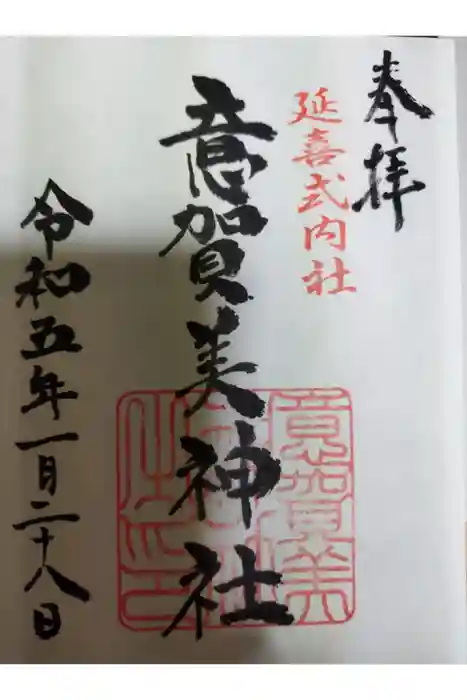 奉拝
延喜式内社
意賀美神社
令和五年一月二十八日
意賀美